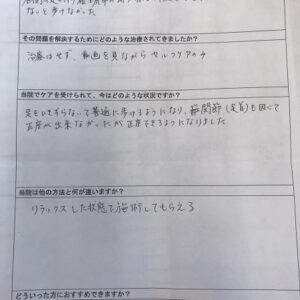 ないと歩けなかった
その問題を解決するためにどのような治療されてきましたか?
治療はせず、動画を見ながらセルフケアのみ
当院でケアを受けられて、今はどのような状況ですか?
足をひきずらないで普通に歩けるようになり、関節(足首)も固くて
正座が出来なかったが正座できるようになりました
当院は他の方法と何が違いますか?
リラックスした状態で施術してもらえる
どういった方におすすめできますか?